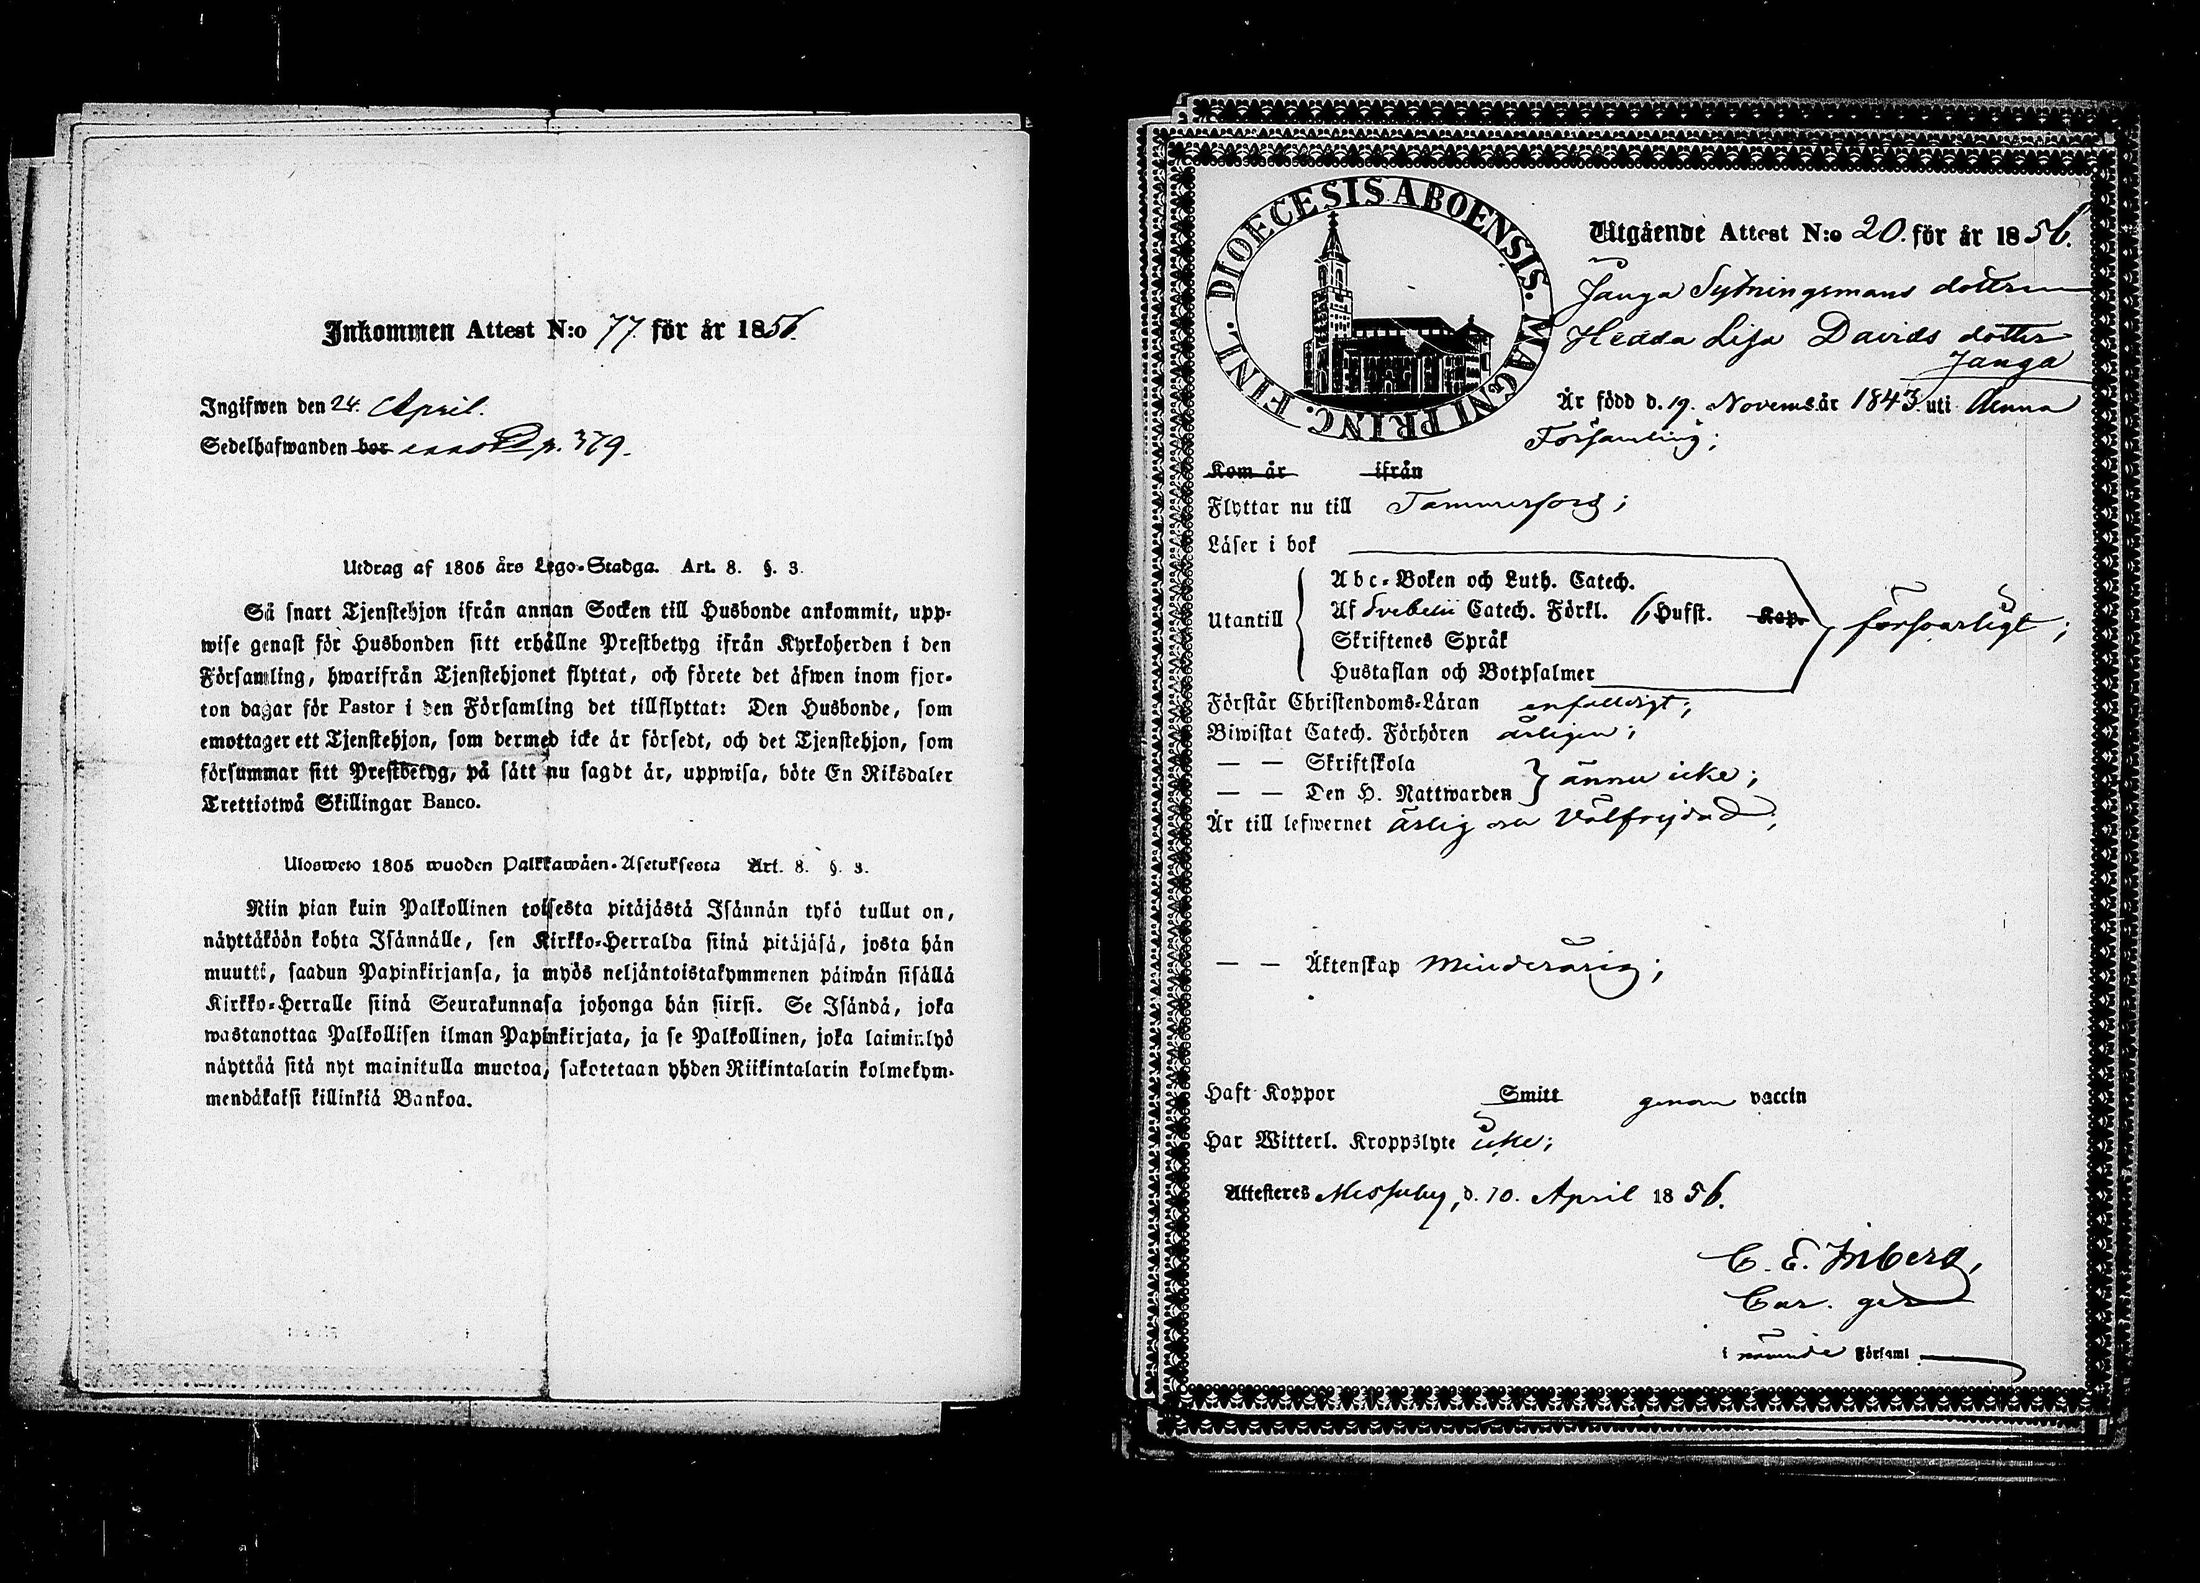 Inkommen Attest N:o 77 för år 1856.
Ingifwen den 24. April.
Sedelhafwanden bor p. 379.
Utdrag af 1805 års Lego-Stadga. Art. 8. §. 3.
Så snart Tjenstehjon ifrån annan Socken till Husbonde ankommit, upp-
wise genast för Husbonden sitt erhållne Prestbetyg ifrån Kyrkoherden i den
Församling, hwarifrån Tjenstehjonet flyttat, och förete det äfwen inom fjor-
ton dagar för Pastor i den Församling det tillflyttat: Den Husbonde, som
emottager ett Tjenstehjon, som dermed icke är försedt, och det Tjenstehjon, som
försummar sitt Prestbetyg, på sätt nu sagdt är, uppwisa, böte En Riksdaler
Trettiotwå Skillingar Banco.
Ulosweto 1805 wuoden Palkkawäen-Asetuksesta Art. 8. §. 3.
Niin pian kuin Palkollinen toisesta pitäjästä Isännän tykö tullut on,
näyttäköön kohta Isännälle, sen Kirkko-Herralda siinä pitäjäsä, josta hän
muutti, saadun Papinkirjansa, ja myös neljäntoistakymmenen päiwän sisällä
Kirkko-Herralle siinä Seurakunnasa johonga hän siirsi. Se Isändä, joka
wastanottaa Palkollisen ilman Papinkirjata, ja se Palkollinen, joka laiminlyö
näyttää sitä nyt mainitulla muotoa, sakotetaan yhden Riikintalarin kolmekym-
mendäkaksi killinkiä Bankoa.
DIOECESIS ABOENSIS. MAGNI PRINC. FINL.
Utgående Attest N:o 20. för år 1856.
Janga Sytningsmans dottren
Hedda Lisa Davids dotter
Janga
Är född d. 19. Novemb. år 1843. uti Lempälä
Församling;
Kom år ifrån
Flyttar nu till Tammerfors;
Läser i bok
Abc-Boken och Luth. Catech.
Utantill Af Svebelii Catech. Förkl. 6 Hufst. Kap. försvarligt;
Skriftenes Språk
Hustaflan och Botpsalmer
Förstår Christendoms-Läran enfaldigt;
Biwistat Catech. Förhören årligen;
— — Skriftskola
— — Den H. Nattwarden ännu icke;
Är till lefwernet ärlig och välfrejdad;
— — Äktenskap minderårig;
Haft Koppor Smitt genom vaccin
Har Witterl. Kroppslyte icke;
Attesteres Messuby, d. 10. April 1856.
C. E. Inberg,
i nämnde Förfaml